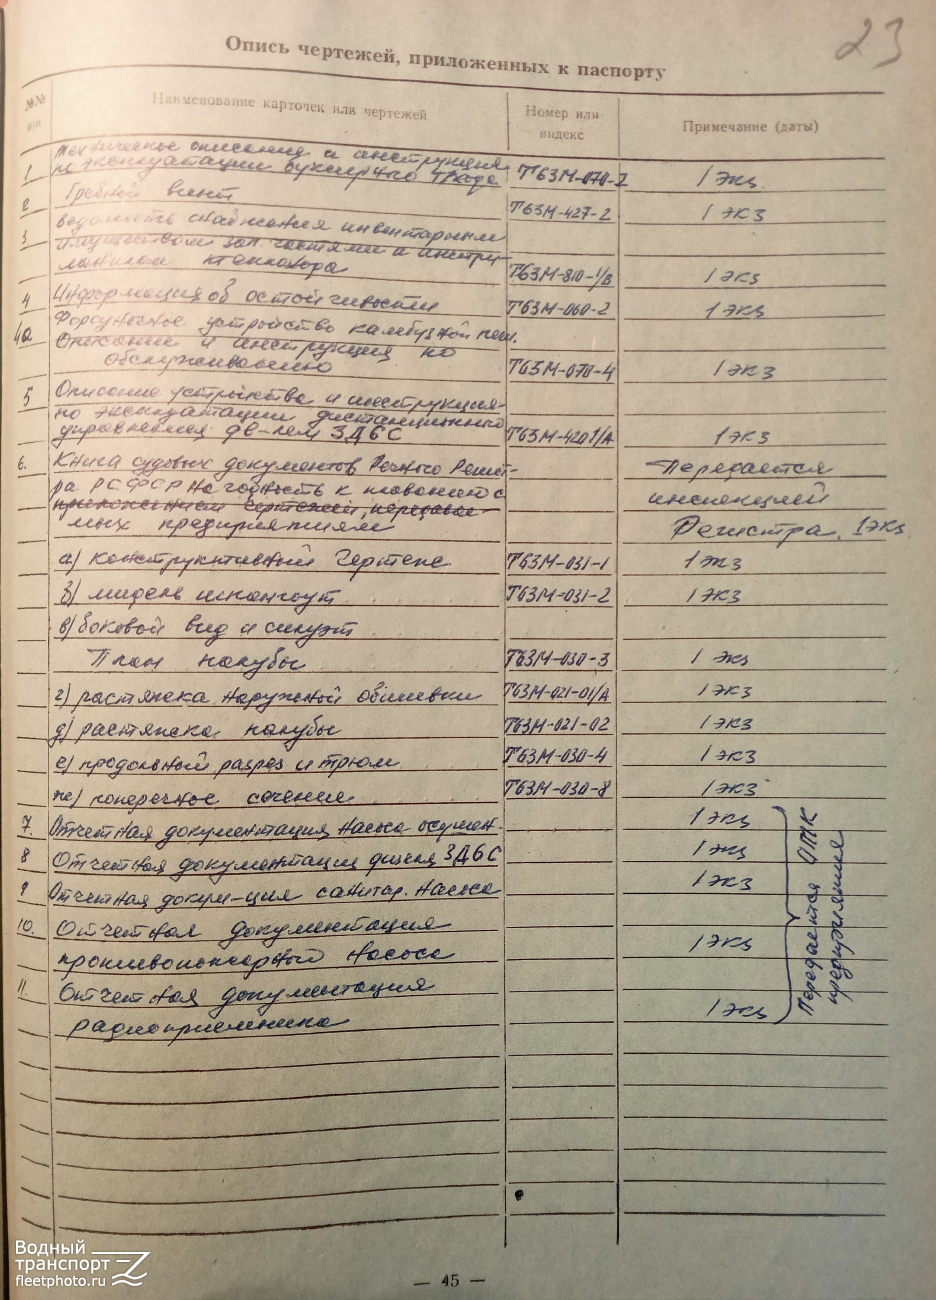 23
Опись чертежей, приложенных к паспорту
№№ п/п Наименование карточек или чертежей Номер или индекс Примечание (даты)
1 техническое описание и инструкция
по эксплуатации буксирного трапа Т63М-070-2 1 экз.
2 Гребной винт Т63М-427-2 1 экз
3 ведомость снабжения инвентарным
имуществом зап. частями и инстру-
Т63М-810-1/В 1 экз
4 Информация об остойчивости Т63М-060-2 1 экз
4а Форсуночное устройство камбузной печи.
Описание и инструкция по
обслуживанию Т63М-070-4 1 экз
5 Описание устройства и инструкция
по эксплуатации дистанционного
управления дв-лем 3Д6С Т63М-4201/А 1 экз
6. Книга судовых документов Речного Регист- Передается
ра РСФСР на годность к плаванию с инспекцией
приложением чертежей, передавае-
мых предприятиям Регистра. 1 экз
а) конструктивный чертеж Т63М-031-1 1 экз
б) мидель шпангоут Т63М-031-2 1 экз
в) боковой вид и силуэт
План палубы Т63М-030-3 1 экз
г) растяжка наружной обшивки Т63М-021-01/А 1 экз
д) растяжка палубы Т63М-021-02 1 экз
е) продольный разрез и трюм Т63М-030-4 1 экз
ж) поперечное сечение Т63М-030-8 1 экз
7. Отчетная документация насоса осушен. 1 экз
8 Отчетная документация дизеля 3Д6С 1 экз
9 Отчетная докум-ция санитар. насоса 1 экз
10. Отчетная документация
противопожарного насоса 1 экз
11. Отчетная документация
радиоприемника 1 экз
Передается ОТК
предприятия
— 45 —
Водный
транспорт
fleetphoto.ru